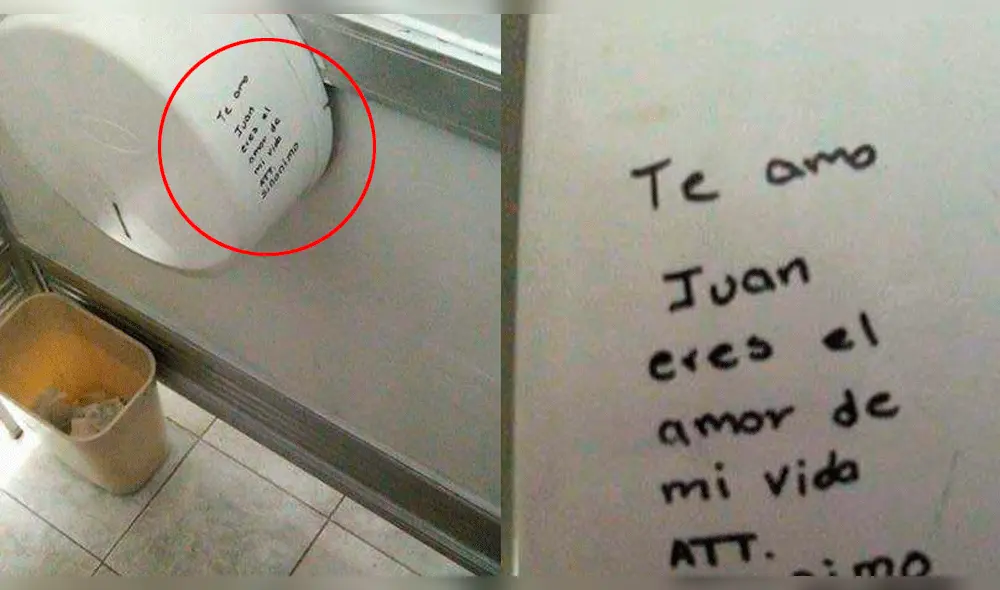 Te amo
Juan
eres el
amor de
mi vida
ATT.
sinonimo
Te amo
Juan
eres el
amor de
mi vida
ATT.
nimo